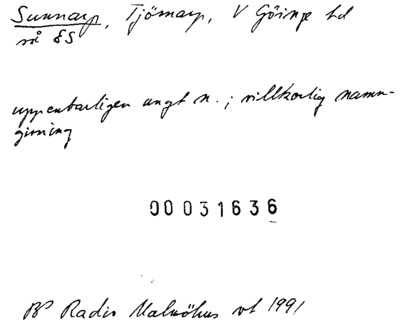 Sunnarp, Tjörnarp, V Göinge hd
nå ES
uppenbarligen ungt n.; villkorlig namn-
givning
00031636
BP Radio Malmöhus vt 1991